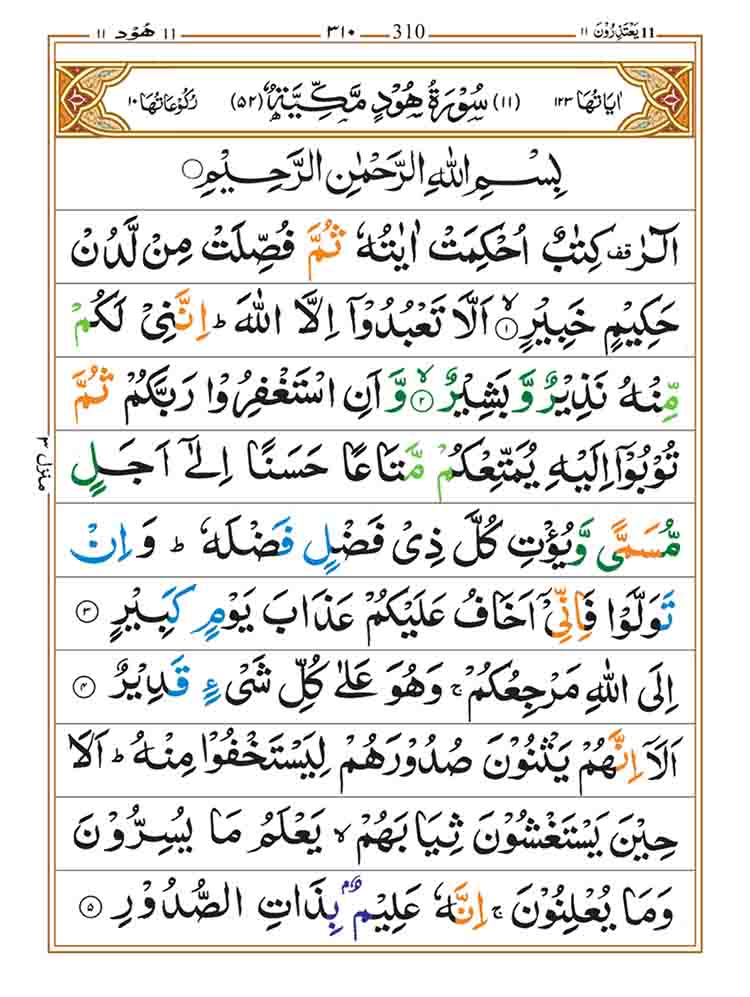 يَعْتَذِرُوْنَ ١١ ٣١٠ 310 هُوْد ١١
اٰيَاتُهَا ١٢٣ (١١) سُوْرَةُ هُوْدٍ مَّكِّيَّةٌ (٥٢) رُكُوْعَاتُهَا ١٠
بِسْمِ اللّٰهِ الرَّحْمٰنِ الرَّحِيْمِ
الٓرٰ قف كِتٰبٌ اُحْكِمَتْ اٰيٰتُهٗ ثُمَّ فُصِّلَتْ مِنْ لَّدُنْ
حَكِيْمٍ خَبِيْرٍ ۙ ١ اَلَّا تَعْبُدُوْۤا اِلَّا اللّٰهَ ؕ اِنَّنِيْ لَكُمْ
مِّنْهُ نَذِيْرٌ وَّ بَشِيْرٌ ۙ ٢ وَّ اَنِ اسْتَغْفِرُوْا رَبَّكُمْ ثُمَّ
تُوْبُوْۤا اِلَيْهِ يُمَتِّعْكُمْ مَّتَاعًا حَسَنًا اِلٰۤى اَجَلٍ
مُّسَمًّى وَّيُؤْتِ كُلَّ ذِيْ فَضْلٍ فَضْلَهٗ ؕ وَ اِنْ
تَوَلَّوْا فَاِنِّيْۤ اَخَافُ عَلَيْكُمْ عَذَابَ يَوْمٍ كَبِيْرٍ ٣
اِلَى اللّٰهِ مَرْجِعُكُمْ ۚ وَهُوَ عَلٰى كُلِّ شَيْءٍ قَدِيْرٌ ٤
اَلَاۤ اِنَّهُمْ يَثْنُوْنَ صُدُوْرَهُمْ لِيَسْتَخْفُوْا مِنْهُ ؕ اَلَا
حِيْنَ يَسْتَغْشُوْنَ ثِيَابَهُمْ ۙ يَعْلَمُ مَا يُسِرُّوْنَ
وَمَا يُعْلِنُوْنَ ۚ اِنَّهٗ عَلِيْمٌۢ بِذَاتِ الصُّدُوْرِ ٥
منزل ٣